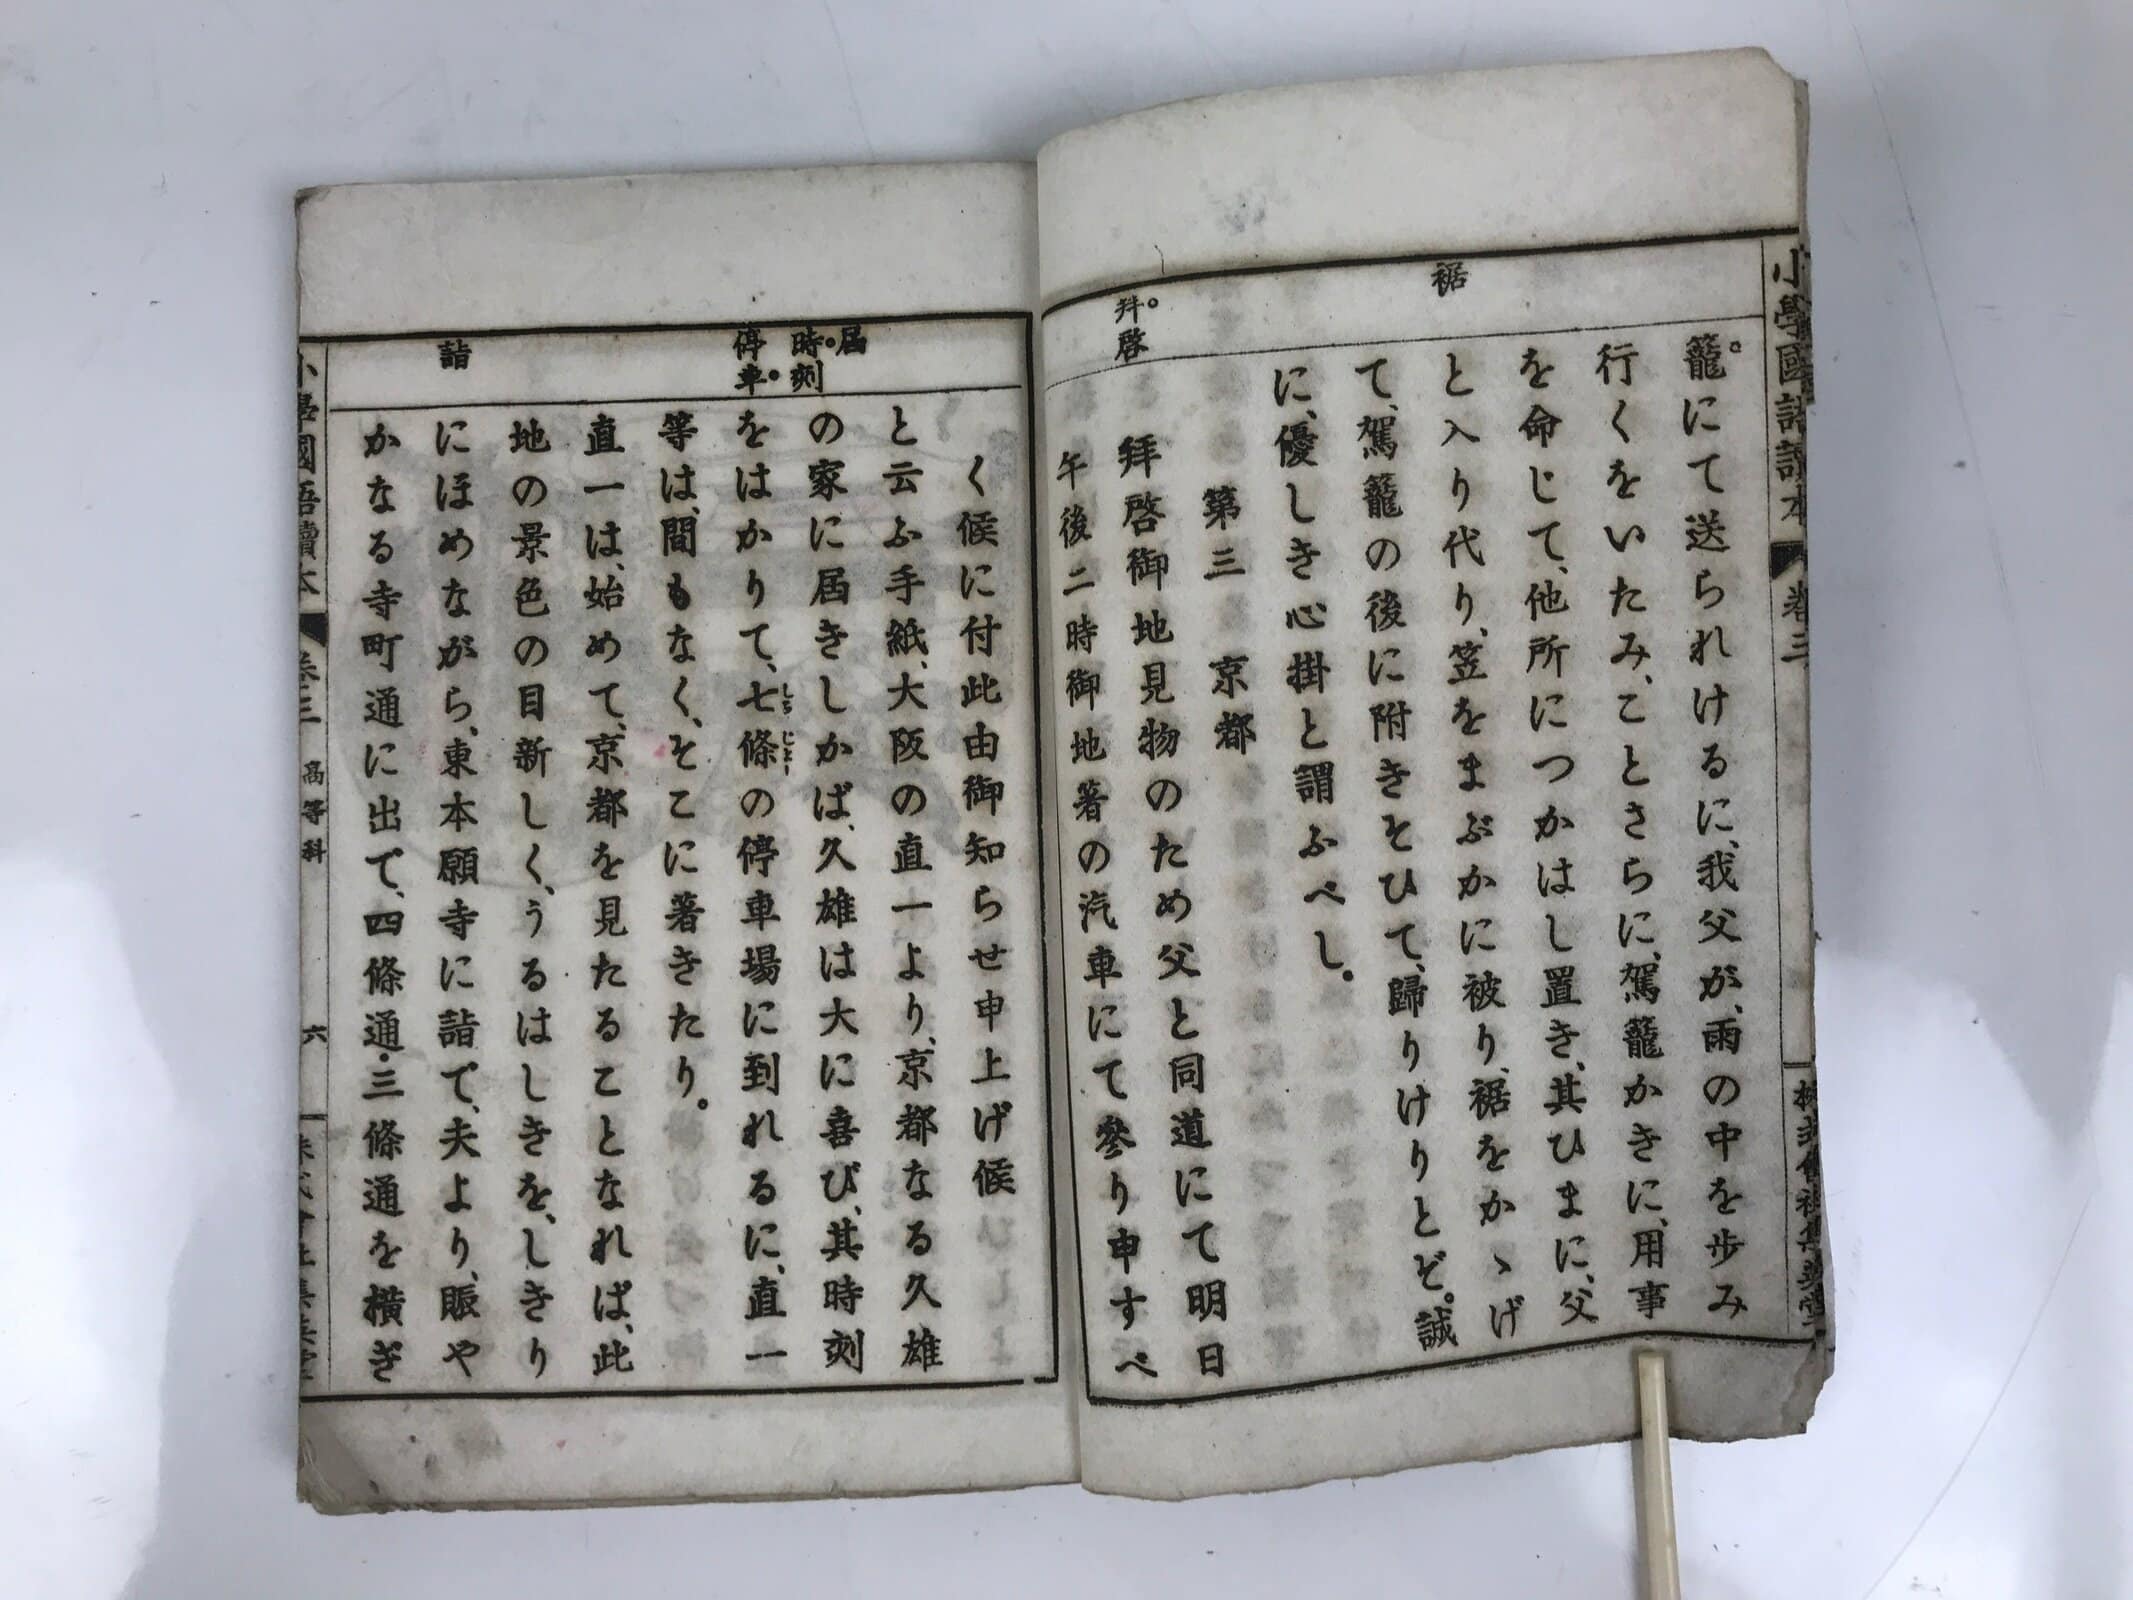 小學國語讀本 卷三
裾
籠。にて送られけるに、我父が、雨の中を歩み
行くをいたみ、ことさらに、駕籠かきに、用事
を命じて、他所につかはし置き、其ひまに、父
と入り代り、笠をまぶかに被り、裾をかゝげ
て、駕籠の後に附きそひて、歸りけりとぞ。誠
に、優しき心掛と謂ふべし。
第三 京都
拜。啓
拜啓御地見物のため父と同道にて明日
午後二時御地著の汽車にて參り申すべ
く候に付此由御知らせ申上げ候
と云ふ手紙、大阪の直一より、京都なる久雄
屆
の家に屆きしかば、久雄は大に喜び、其時刻
時。刻
をはかりて、七條の停車場に到れるに、直一
しちじょー
停車。
等は、間もなく、そこに著きたり。
直一は、始めて、京都を見たることなれば、此
地の景色の目新しく、うるはしきを、しきり
にほめながら、東本願寺に詣で、夫より、賑や
詣
かなる寺町通に出で、四條通・三條通を横ぎ
小學國語讀本 卷三 高等科 六